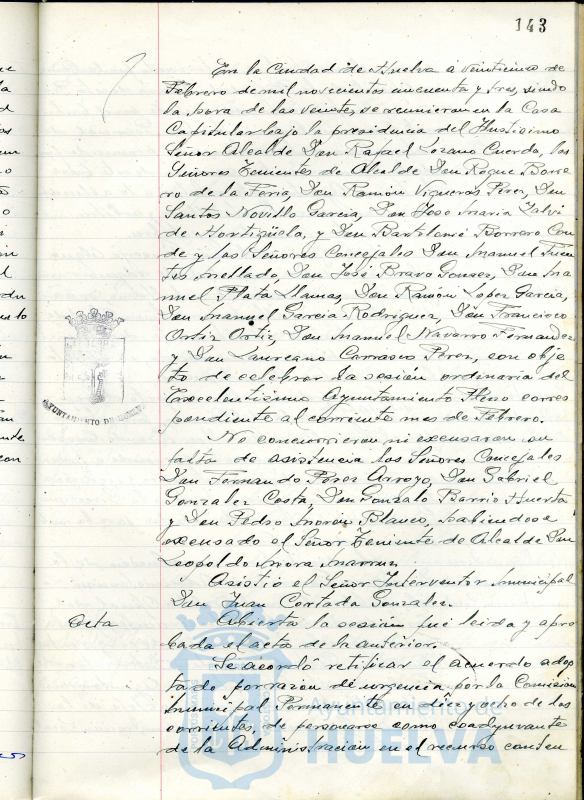 143
En la Ciudad de Huelva a veinticinco de
Febrero de mil novecientos cincuenta y tres, siendo
la hora de las veinte, se reunieron en la Casa
Capitular bajo la presidencia del Ilustrísimo
Señor Alcalde Don Rafael Lozano Cuerda, los
Señores Tenientes de Alcalde Don Roque Borre
ro de la Feria, Don Ramón Vigueras Perez, Don
Santos Novillo García, Don Jose Maria Zalvi
de Hortigüela, y Don Bartolomé Borrero Con
de y los Señores Concejales Don Manuel Fuen
tes Mellado, Don José Bravo Don Ma
nuel Plata Llamas, Don Ramón Lopez García,
Don Manuel García Rodriguez, Don Francisco
Ortiz Ortiz, Don Manuel Navarro Fernandez
y Don Laureano Carrasco Perez, con obje
to de celebrar la sesión ordinaria del
Excelentisimo Ayuntamiento Pleno corres
pondiente al corriente mes de Febrero.
No concurrieron ni excusaron su
falta de asistencia los Señores Concejales
Don Fernando Pérez Arroyo, Don Gabriel
Gonzalez Costa, Don Gonzalo Barrio Huerta
y Don Pedro Morón Blanco, habiendose
excusado el Señor Teniente de Alcalde Don
Leopoldo Mora
Asistio el Señor Interventor Municipal
Don Juan Cortada Gonzalez.
Acta
Abierta la sesión fué leida y apro
bada el acta de la anterior.
Se acordó ratificar el acuerdo adop
tado por razón de urgencia por la Comision
Municipal Permanente en dieciocho de los
corrientes, de personarse como coadyuvante
de la Administración en el recurso conten
AYUNTAMIENTO DE HUELVA
Ayuntamiento de
HUELVA